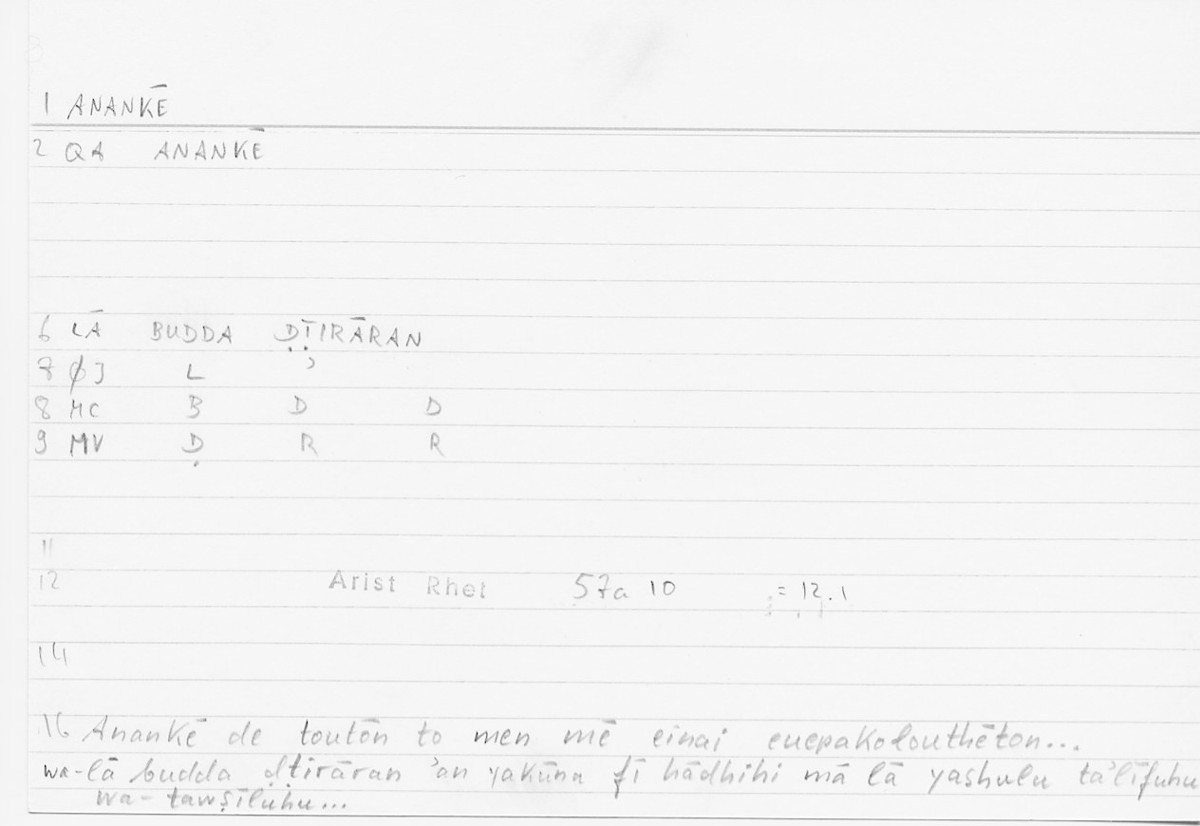 1 ANANKĒ
2 QA ANANKĒ
6 LĀ BUDDA ḌṬIRĀRAN
8 ØJ L ʾ
8 MC B D D
9 MV Ḍ R R
11
12 Arist Rhet 57a 10 = 12.1
14
16 Anankē de toutōn to men mē einai euepakolouthēton...
wa-lā budda ḍṭirāran ʾan yakūna fī hādhihi mā lā yashulu taʾlīfuhu
wa-tawṣīluhu...